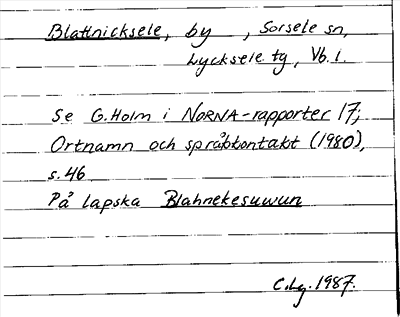 Blattnicksele, by , Sorsele sn,
Lycksele tg, Vb.l.
Se G.Holm i NORNA-rapporter 17;
Ortnamn och språkkontakt (1980),
s.46
På lapska Blahnekesuwun
C.Lg. 1987.